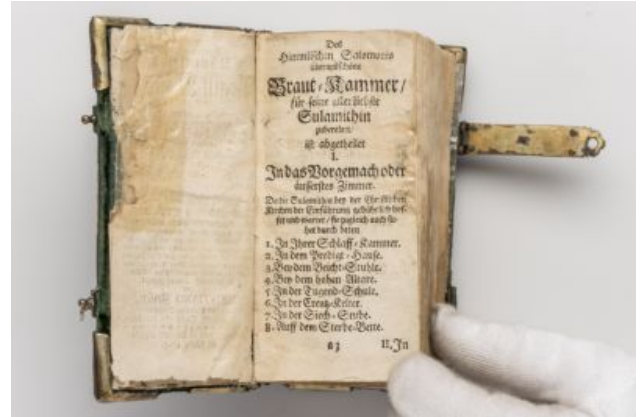 Des
Himmlischen Salomons
Braut-Kammer/
für seine allerliebste
Sulamithin
zubereitet/
ist abgetheilet
I.
In das Vorgemach oder
äusserstes Zimmer.
Da die Sulamithin bey der Christlichen
Kirchen der Einführung
set und wartet / sie zugleich auch
het durch beten
1. In Ihrer Schlaff-Kammer.
2. In dem Predigt-Hause.
3. Bey dem Beicht-Stuhle.
4. Bey dem hohen Altare.
5. In der Tugend-Schule.
6. In der Creutz-Kelter.
7. In der Siech-Stube.
8. Auff dem Sterbe-Bette.
a3 II. In